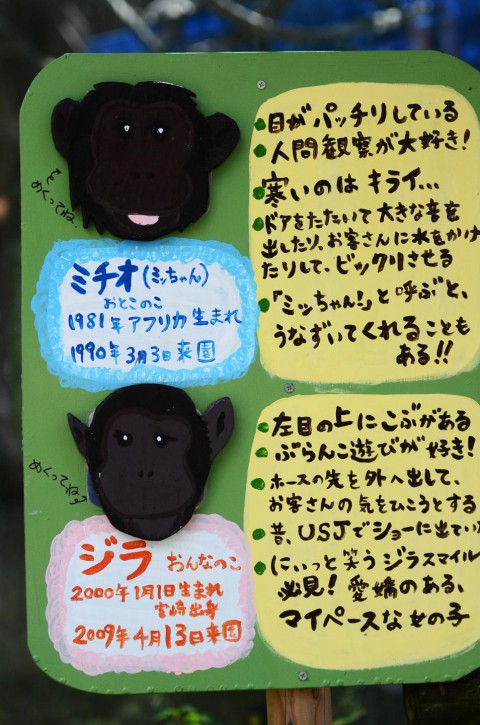 めくってね。
ミチオ(ミッちゃん)
おとこのこ
1981年 アフリカ 生まれ
1990年 3月3日 来園
目がパッチリしている
人間観察が大好き!
寒いのは キライ…
ドアをたたいて 大きな音を
出したり、お客さんに水をかけ
たりして、ビックリさせる
「ミッちゃん!」と呼ぶと、
うなずいてくれることも
ある!!
めくってね
ジラ おんなのこ
2000年 1月1日 生まれ
宮崎出身
2009年 4月13日 来園
左目の上にこぶがある
ぶらんこ遊びが好き!
ホースの先を外へ出して、
お客さんの気をひこうとする
昔、USJでショーに出てい
にいっと笑う ジラスマイル
必見! 愛嬌のある、
マイペースな女の子